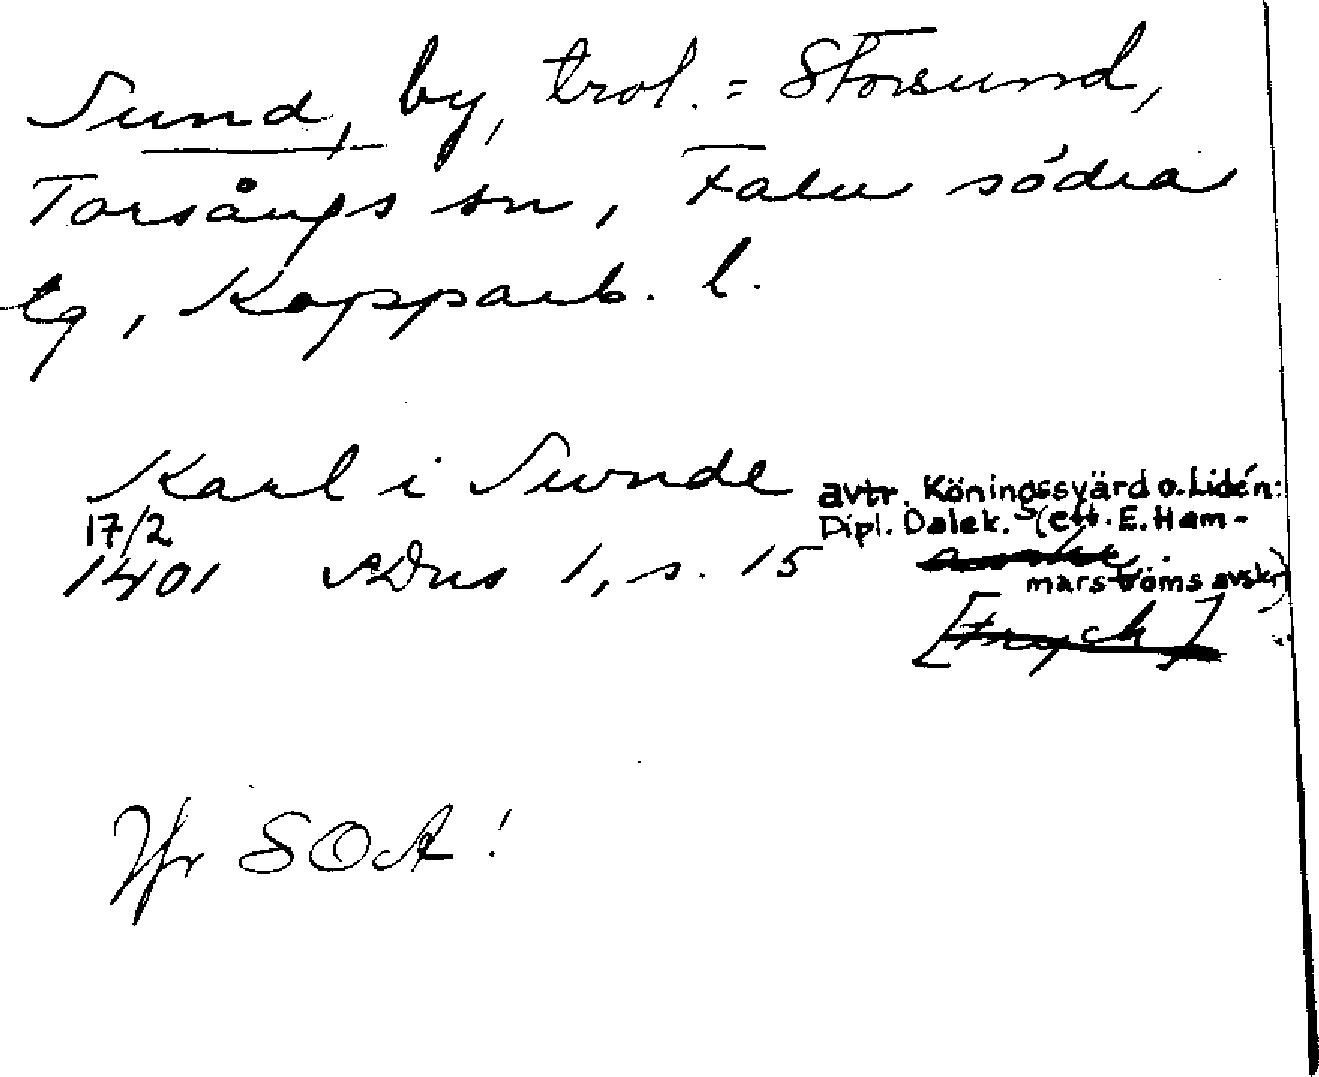 Sund, by, trol. = Storsund,
Torsångs sn, Falu södra
tg, Kopparb. l.
Karl i Sunde avtr. Köningssvärd o. Lidén:
17/2 Dipl. Dalek. (ett. E. Ham-
1401 SDns 1, s. 15 marströms avskr)
[tryck]
Jfr SOA!